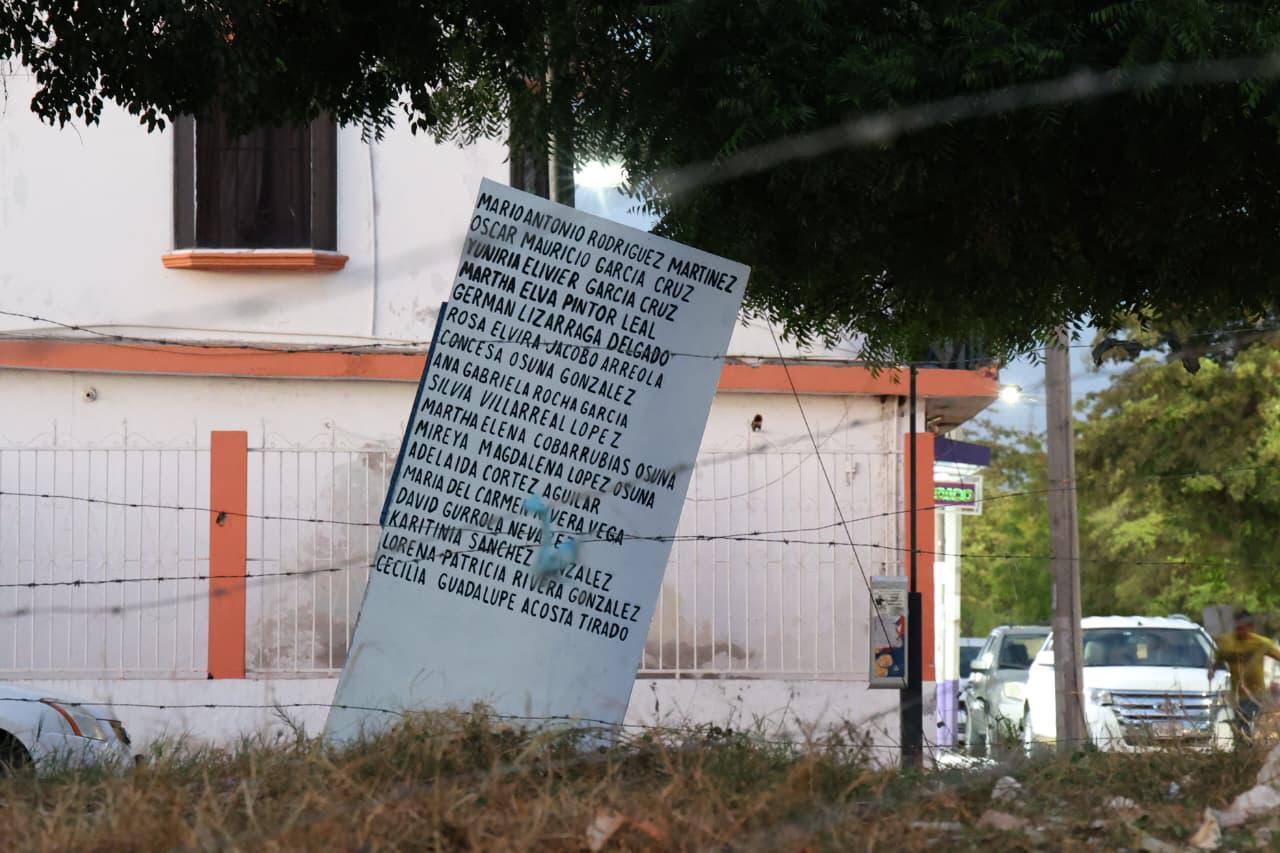 MARIO ANTONIO RODRIGUEZ MARTINEZ
OSCAR MAURICIO GARCIA CRUZ
YUNIRIA ELIVIER GARCIA CRUZ
MARTHA ELVA PINTOR LEAL
GERMAN LIZARRAGA DELGADO
ROSA ELVIRA JACOBO ARREOLA
CONCESA OSUNA GONZALEZ
ANA GABRIELA ROCHA GARCIA
SILVIA VILLARREAL LOPEZ
MARTHA ELENA COBARRUBIAS OSUNA
MIREYA MAGDALENA LOPEZ OSUNA
ADELAIDA CORTEZ AGUILAR
MARIA DEL CARMEN VEGA
DAVID GURROLA
KARITINIA SANCHEZ
LORENA PATRICIA RIVERA GONZALEZ
CECILIA GUADALUPE ACOSTA TIRADO